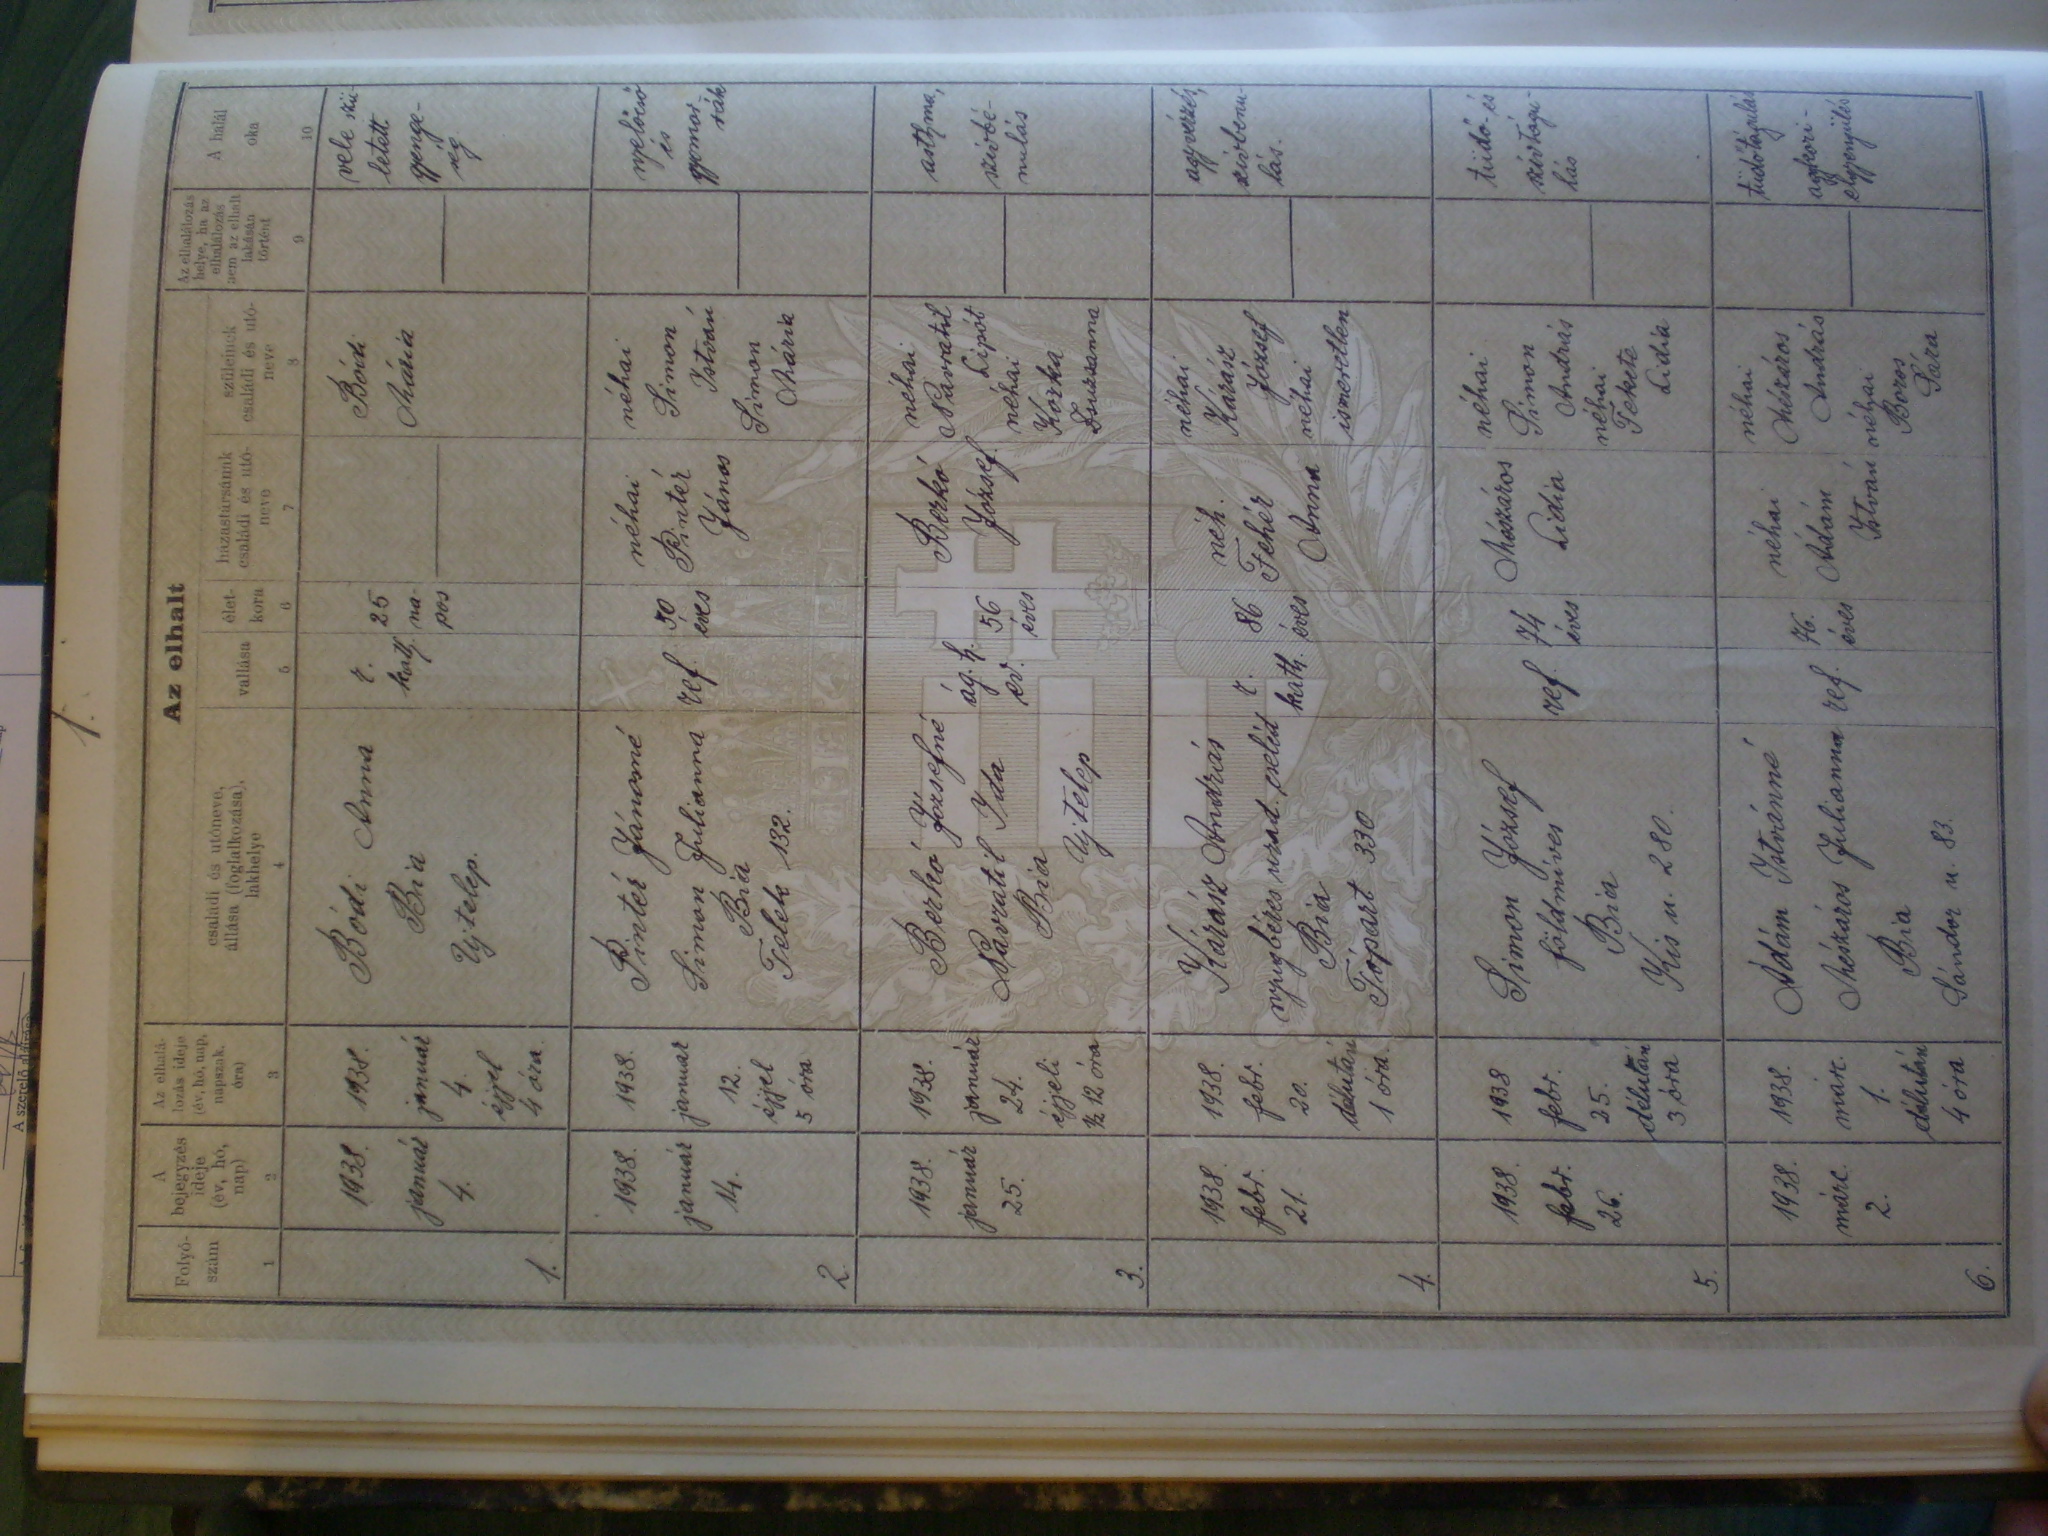 1.
Az elhalt
Folyó-
szám
A
bejegyzés
ideje
(év, hó,
nap)
Az elhalá-
lozás ideje
(év, hó, nap,
napszak,
óra)
családi és utóneve,
állása (foglalkozása),
lakhelye
vallása
élet-
kora
házastársának
családi és utó-
neve
szüleinek
családi és utó-
neve
Az elhalálozás
helye, ha az
elhalálozás
nem az elhalt
lakásán
történt
A halál
oka
1
2
3
4
5
6
7
8
9
10
1.
1938.
január
4.
1938.
január
4.
éjjel
4 óra.
Bódi Anna
Bia
Ujtelep.
r.
kath.
25
na-
pos
Bódi
Mária
vele szü-
letett
gyenge-
ség
2.
1938.
január
14.
1938.
január
12.
éjjel
5 óra
Pintér Jánosné
Simon Julianna
Bia
Telek 132.
ref.
50
éves
néhai
Pintér
János
néhai
Simon
István
Simon
Mária
nyelőcső
és
gyomor
rák
3.
1938.
január
25.
1938.
január
24.
éjjeli
½ 12 óra
Berkó Józsefné
Navratil Ida
Bia
Ujtelep
ág. h.
ev.
56
éves
Berkó
József.
néhai
Navratil
Lipót
néhai
Kozka
Zsuzsanna
asthma,
szívbé-
nulás
4.
1938.
febr.
21.
1938.
febr.
20.
délután
1 óra.
Kárász András
nyugbéres urad. cseléd
Bia
Tópart 330
r.
kath.
86
éves
néh.
Fehér
Anna
néhai
Kárász
József
néhai
ismeretlen
agyvérzés,
szívbénu-
lás.
5.
1938
febr.
26.
1938
febr.
25.
délután
3 óra
Simon József
földmíves
Bia
Kis u. 280.
ref.
74
éves
Mészáros
Lidia
néhai
Simon
András
néhai
Fekete
Lidia
tüdő- és
szívtágu-
lás
6.
1938.
márc.
2.
1938.
márc.
1.
délután
4 óra
Ádám Istvánné
Mészáros Julianna
Bia
Sándor u. 83.
ref.
76.
éves
néhai
Ádám
István
néhai
Mészáros
András
néhai
Boros
Sára
tüdőtágulás
aggkori-
elgyengülés
A szerelő aláírása